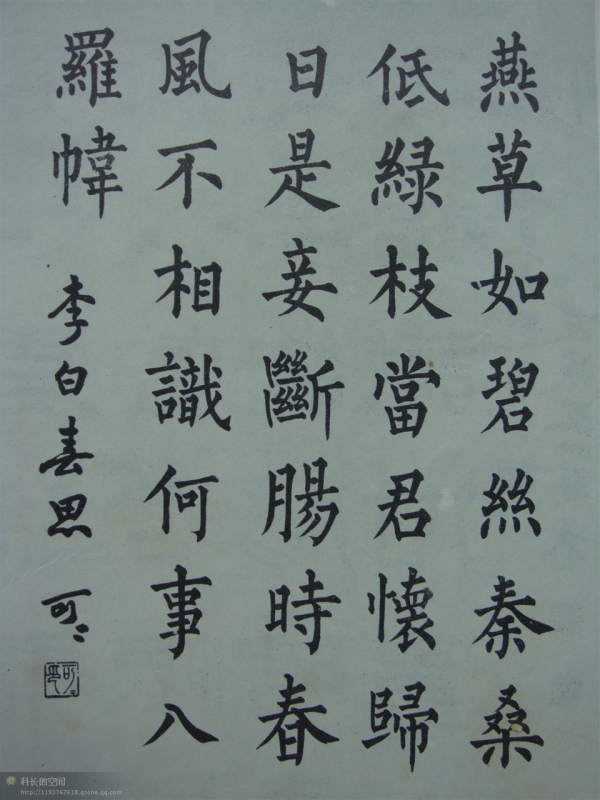 燕草如碧絲秦桑
低綠枝當君懷歸
日是妾斷腸時春
風不相識何事八
羅幃
李白春思 可二
科长的空间
http://1193767618.qzone.qq.com